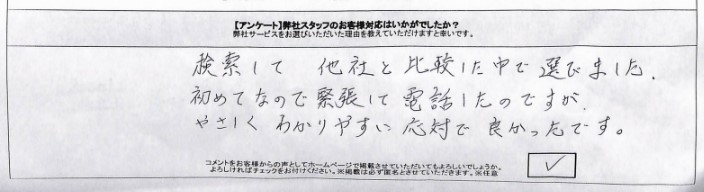 【アンケート】弊社スタッフのお客様対応はいかがでしたか？
弊社サービスをお選びいただいた理由を教えていただけますと幸いです。
検索して 他社と比較した中で選びました.
初めてなので緊張して電話したのですが.
やさしく わかりやすい 応対で 良かったです。
コメントをお客様からの声としてホームページで掲載させていただいてもよろしいでしょうか。
よろしければチェックをお付けください。※掲載は必ず匿名とさせていただきます。※任意